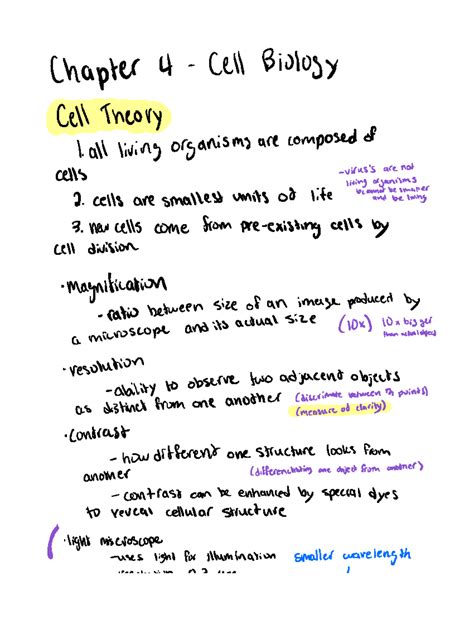 Chapter 4 - Cell Biology
Cell Theory
1. all living organisms are composed of
cells
2. cells are smallest units of life
-virus's are not
living organisms
cannot be smaller
and be living
3. new cells come from pre-existing cells by
cell division
·Magnification
-ratio between size of an image produced by
a microscope and its actual size (10x) 10x bigger
than actual object
·resolution
-ability to observe two adjacent objects
as distinct from one another (discriminate between points)
(measure of clarity)
·Contrast
- how different one structure looks from
another (differentiating one object from another)
- contrast can be enhanced by special dyes
to reveal cellular structure
·light microscope
-uses light for illumination smaller wavelength